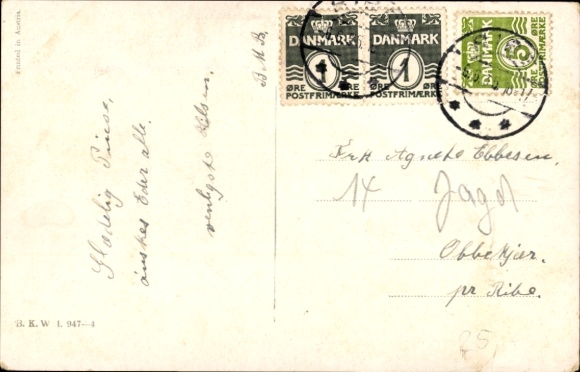 Printed in Austria.
Glædelig Pinse,
ønskes Eder alle.
venligste Hilsen,
B. K. W. I. 947-4
DANMARK
1
ØRE
POSTFRIMÆRKE
DANMARK
1
ØRE
POSTFRIMÆRKE
DANMARK
5
ØRE
POSTFRIMÆRKE
Frk Agnethe Ebbesen,
14 Jagd
Obbekjær.
pr Ribe.